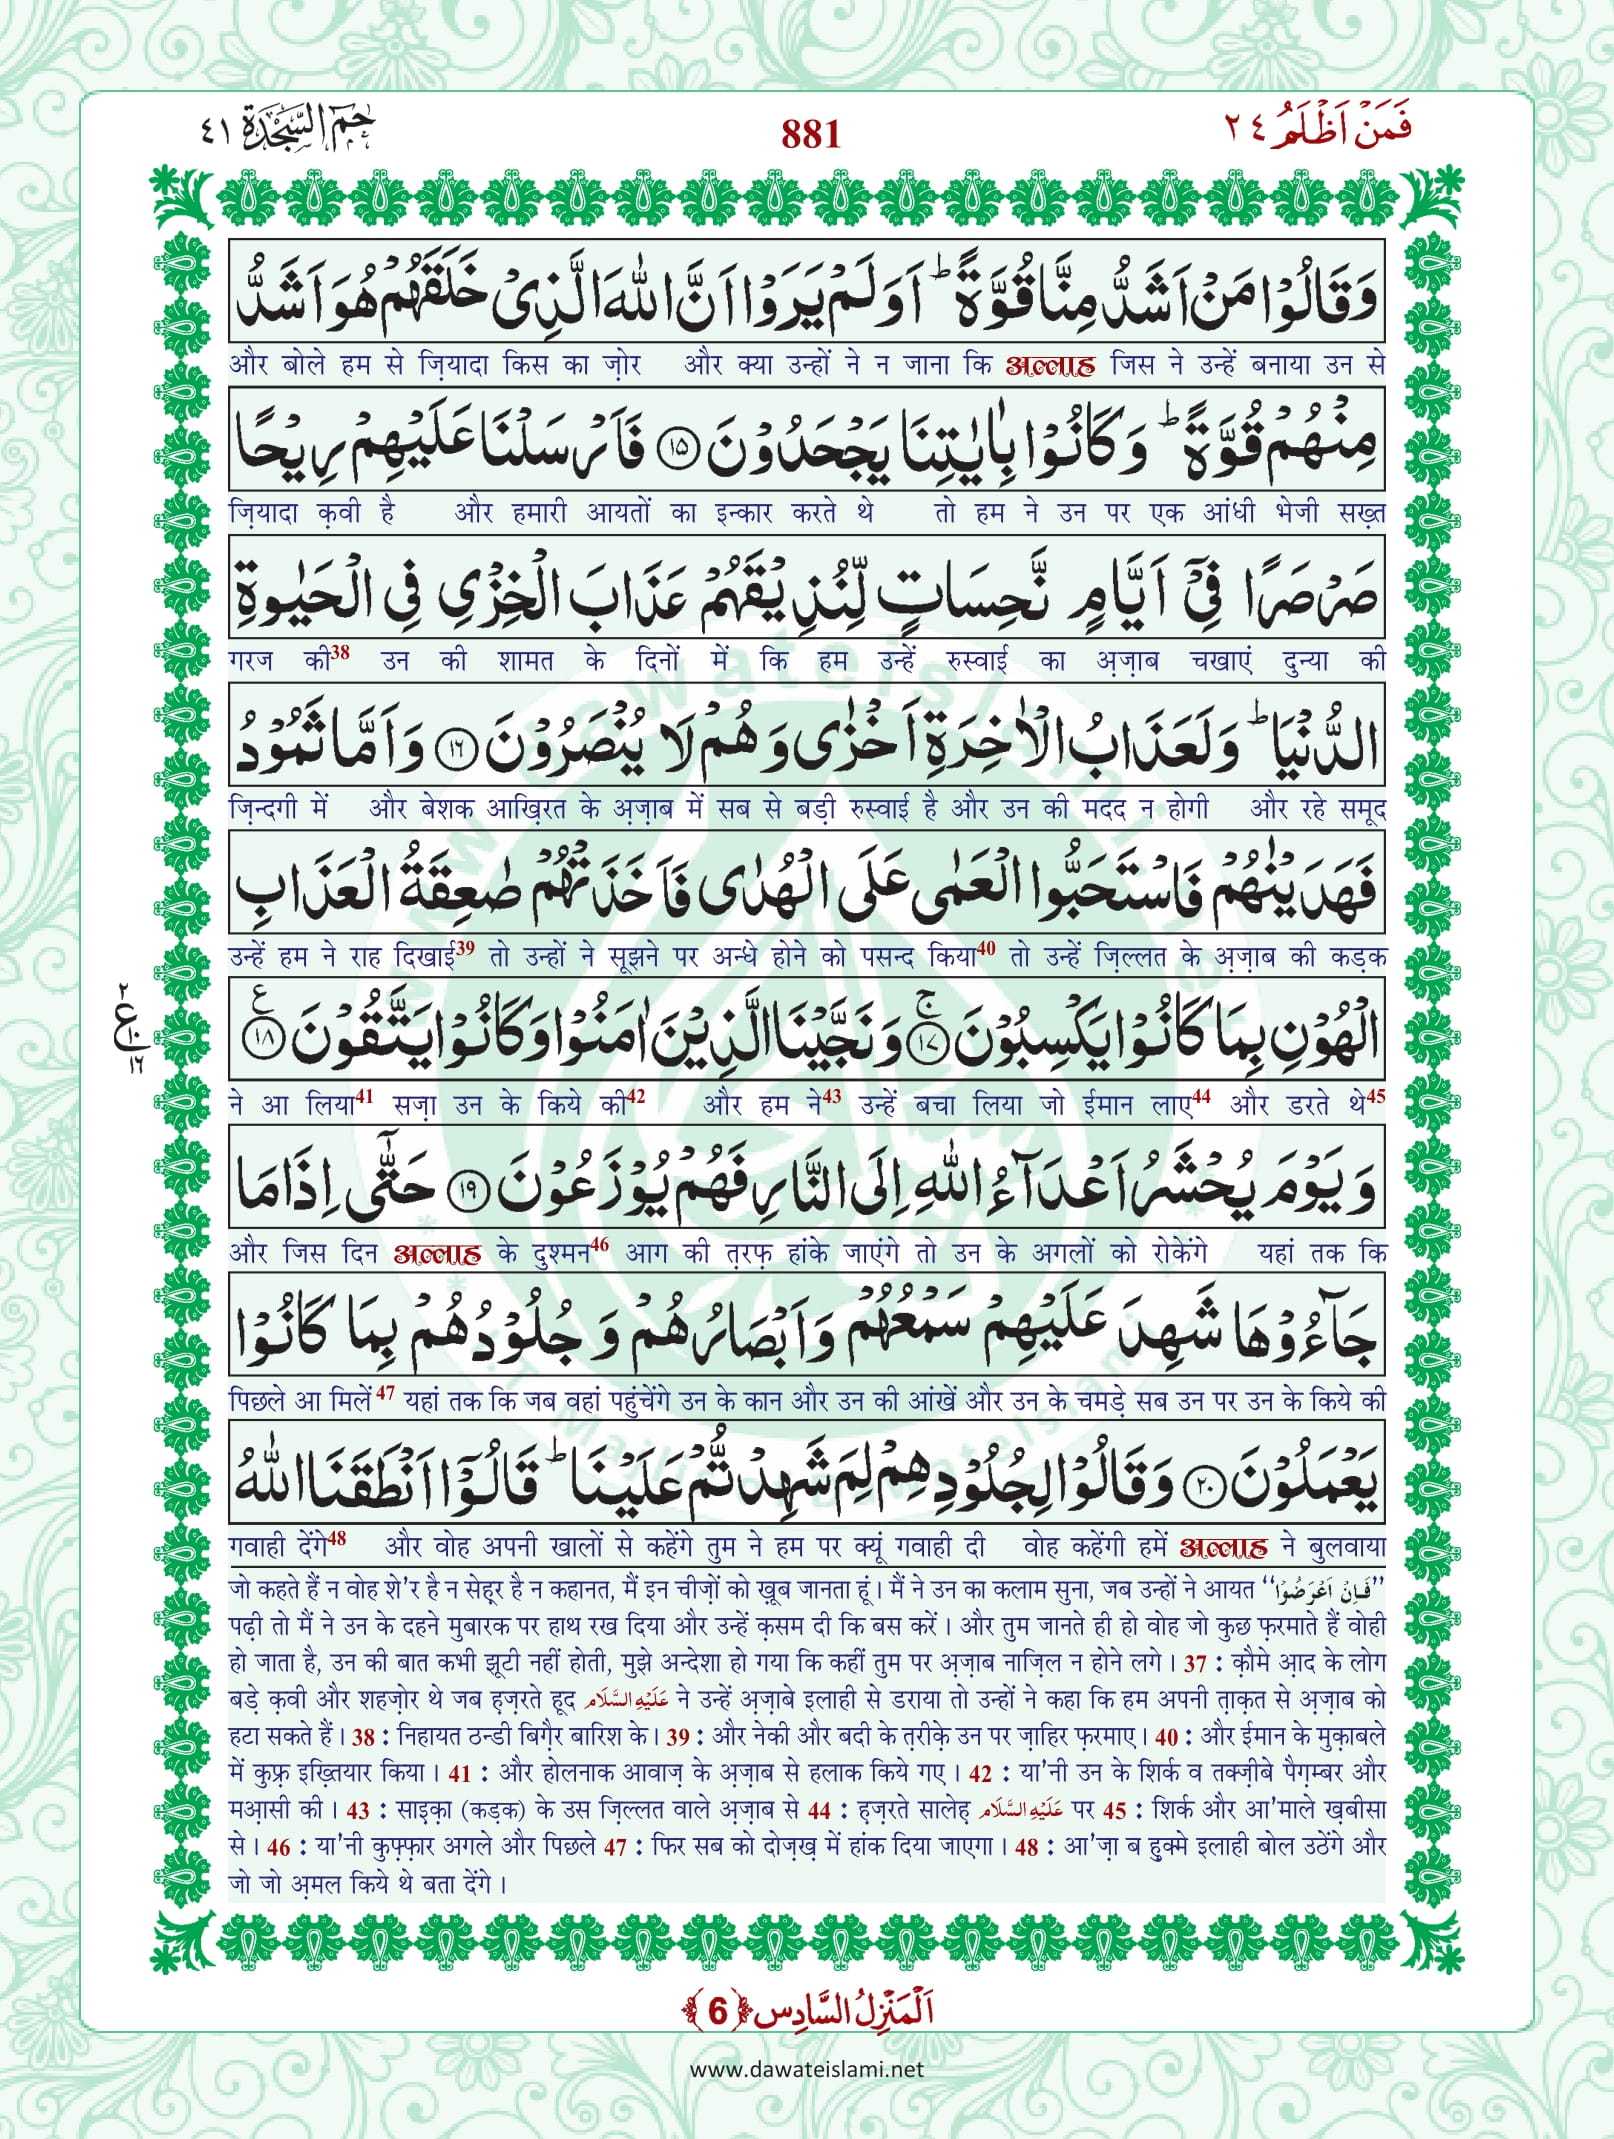 حٰمٓ السَّجْدَة ٤١
881
فَمَنْ اَظْلَمُ ٢٤
وَقَالُوْا مَنْ اَشَدُّ مِنَّا قُوَّةً ؕ اَوَلَمْ يَرَوْا اَنَّ اللّٰهَ الَّذِىْ خَلَقَهُمْ هُوَ اَشَدُّ
और बोले हम से ज़ियादा किस का ज़ोर और क्या उन्हों ने न जाना कि अल्लाह जिस ने उन्हें बनाया उन से
مِنْهُمْ قُوَّةً ؕ وَكَانُوْا بِاٰيٰتِنَا يَجْحَدُوْنَ ﴿١٥﴾ فَاَرْسَلْنَا عَلَيْهِمْ رِيْحًا
ज़ियादा क़वी है और हमारी आयतों का इन्कार करते थे तो हम ने उन पर एक आंधी भेजी सख़्त
صَرْصَرًا فِىْۤ اَيَّامٍ نَّحِسَاتٍ لِّنُذِيْقَهُمْ عَذَابَ الْخِزْىِ فِى الْحَيٰوةِ
गरज की38 उन की शामत के दिनों में कि हम उन्हें रुस्वाई का अ़ज़ाब चखाएं दुन्या की
الدُّنْيَا ؕ وَلَعَذَابُ الْاٰخِرَةِ اَخْزٰى وَهُمْ لَا يُنْصَرُوْنَ ﴿١٦﴾ وَاَمَّا ثَمُوْدُ
ज़िन्दगी में और बेशक आख़िरत के अ़ज़ाब में सब से बड़ी रुस्वाई है और उन की मदद न होगी और रहे समूद
فَهَدَيْنٰهُمْ فَاسْتَحَبُّوا الْعَمٰى عَلَى الْهُدٰى فَاَخَذَتْهُمْ صٰعِقَةُ الْعَذَابِ
उन्हें हम ने राह दिखाई39 तो उन्हों ने सूझने पर अन्धे होने को पसन्द किया40 तो उन्हें ज़िल्लत के अ़ज़ाब की कड़क
الْهُوْنِ بِمَا كَانُوْا يَكْسِبُوْنَ ۚ﴿١٧﴾ وَنَجَّيْنَا الَّذِيْنَ اٰمَنُوْا وَكَانُوْا يَتَّقُوْنَ ﴿١٨﴾ ع
٢ ع ١٠ ١٦
ने आ लिया41 सज़ा उन के किये की42 और हम ने43 उन्हें बचा लिया जो ईमान लाए44 और डरते थे45
وَيَوْمَ يُحْشَرُ اَعْدَآءُ اللّٰهِ اِلَى النَّارِ فَهُمْ يُوْزَعُوْنَ ﴿١٩﴾ حَتّٰۤى اِذَا مَا
और जिस दिन अल्लाह के दुश्मन46 आग की त़रफ़ हांके जाएंगे तो उन के अगलों को रोकेंगे यहां तक कि
جَآءُوْهَا شَهِدَ عَلَيْهِمْ سَمْعُهُمْ وَاَبْصَارُهُمْ وَجُلُوْدُهُمْ بِمَا كَانُوْا
पिछले आ मिलें47 यहां तक कि जब वहां पहुंचेंगे उन के कान और उन की आंखें और उन के चमड़े सब उन पर उन के किये की
يَعْمَلُوْنَ ﴿٢٠﴾ وَقَالُوْا لِجُلُوْدِهِمْ لِمَ شَهِدْتُّمْ عَلَيْنَا ؕ قَالُوْۤا اَنْطَقَنَا اللّٰهُ
गवाही देंगे48 और वोह अपनी खालों से कहेंगे तुम ने हम पर क्यूं गवाही दी वोह कहेंगी हमें अल्लाह ने बुलवाया
जो कहते हैं न वोह शे'र है न सेह़्र है न कहानत, मैं इन चीज़ों को ख़ूब जानता हूं। मैं ने उन का कलाम सुना, जब उन्हों ने आयत "فَاِنْ اَعْرَضُوْا"
पढ़ी तो मैं ने उन के दहने मुबारक पर हाथ रख दिया और उन्हें क़सम दी कि बस करें। और तुम जानते ही हो वोह जो कुछ फ़रमाते हैं वोही
हो जाता है, उन की बात कभी झूटी नहीं होती, मुझे अन्देशा हो गया कि कहीं तुम पर अ़ज़ाब नाज़िल न होने लगे। 37 : क़ौमे आ़द के लोग
बड़े क़वी और शहज़ोर थे जब ह़ज़रते हूद عَلَيْهِ السَّلَام ने उन्हें अ़ज़ाबे इलाही से डराया तो उन्हों ने कहा कि हम अपनी त़ाक़त से अ़ज़ाब को
हटा सकते हैं। 38 : निहायत ठन्डी बिग़ैर बारिश के। 39 : और नेकी और बदी के त़रीक़े उन पर ज़ाहिर फ़रमाए। 40 : और ईमान के मुक़ाबले
में कुफ़्र इख़्तियार किया। 41 : और होलनाक आवाज़ के अ़ज़ाब से हलाक किये गए। 42 : या'नी उन के शिर्क व तक्ज़ीबे पैग़म्बर और
मआ़सी की। 43 : साइ़क़ा (कड़क) के उस ज़िल्लत वाले अ़ज़ाब से 44 : ह़ज़रते सालेह़ عَلَيْهِ السَّلَام पर 45 : शिर्क और आ'माले ख़बीसा
से। 46 : या'नी कुफ़्फ़ार अगले और पिछले 47 : फिर सब को दोज़ख़ में हांक दिया जाएगा। 48 : आ'ज़ा ब हु़क्मे इलाही बोल उठेंगे और
जो जो अ़मल किये थे बता देंगे।
اَلْمَنْزِلُ السَّادِس ﴿6﴾
www.dawateislami.net